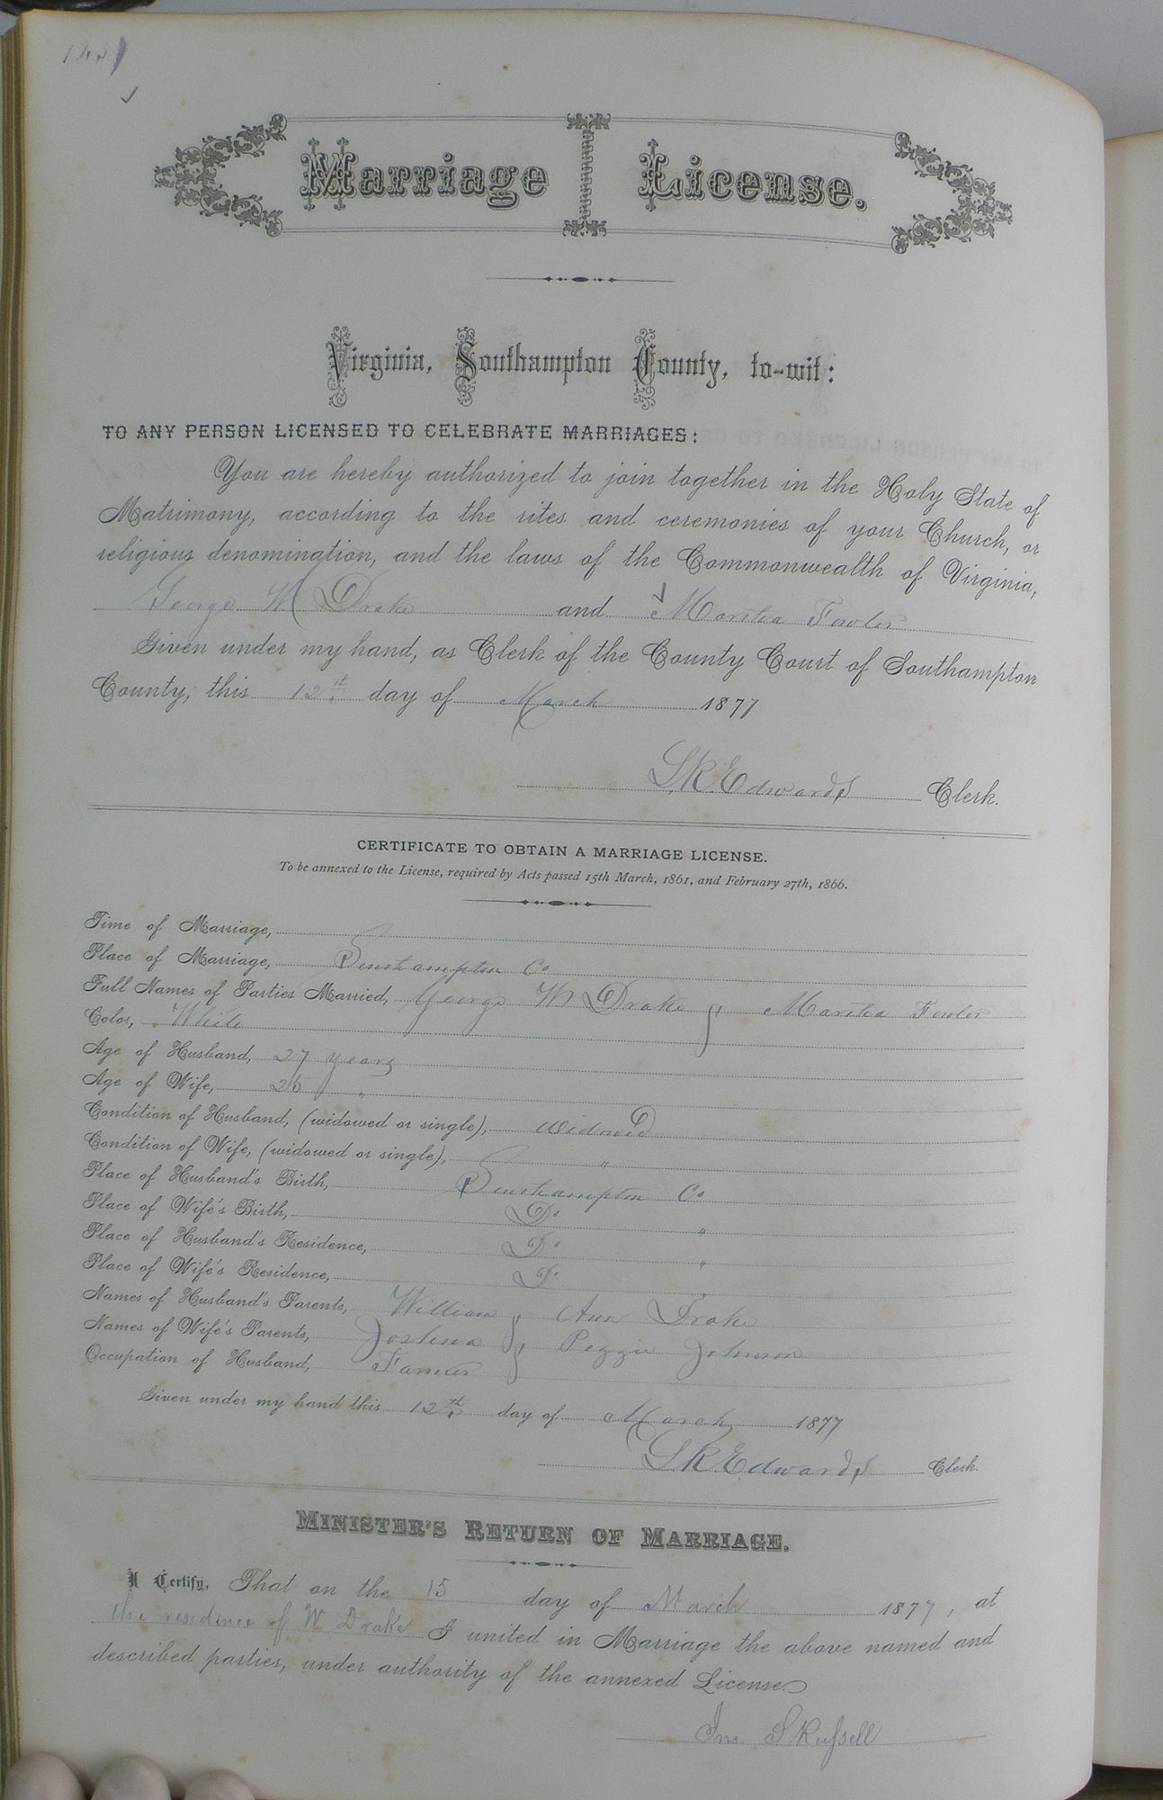 Marriage License.
Virginia, Southampton County, to-wit:
TO ANY PERSON LICENSED TO CELEBRATE MARRIAGES:
You are hereby authorized to join together in the Holy State of
Matrimony, according to the rites and ceremonies of your Church, or
religious denomination, and the laws of the Commonwealth of Virginia,
George W Drake and Martha Fowler
Given under my hand, as Clerk of the County Court of Southampton
County, this 12th day of March 1877
L.R. Edwards Clerk.
CERTIFICATE TO OBTAIN A MARRIAGE LICENSE.
To be annexed to the License, required by Acts passed 15th March, 1861, and February 27th, 1866.
Time of Marriage,
Place of Marriage, Southampton Co
Full Names of Parties Married, George W Drake & Martha Fowler
Color, White
Age of Husband, 27 years
Age of Wife, 25 "
Condition of Husband, (widowed or single), Widowed
Condition of Wife, (widowed or single), "
Place of Husband's Birth, Southampton Co
Place of Wife's Birth, Do "
Place of Husband's Residence, Do "
Place of Wife's Residence, Do
Names of Husband's Parents, William & Ann Drake
Names of Wife's Parents, Joshua & Peggie Johnson
Occupation of Husband, Farmer
Given under my hand this 12th day of March 1877
L.R. Edwards Clerk.
MINISTER'S RETURN OF MARRIAGE.
I Certify, That on the 15 day of March 1877, at
the residence of W Drake I united in Marriage the above named and
described parties, under authority of the annexed License
Jno. S Russell